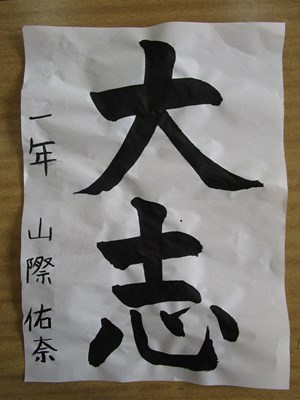 大志
一年 山際 佑奈